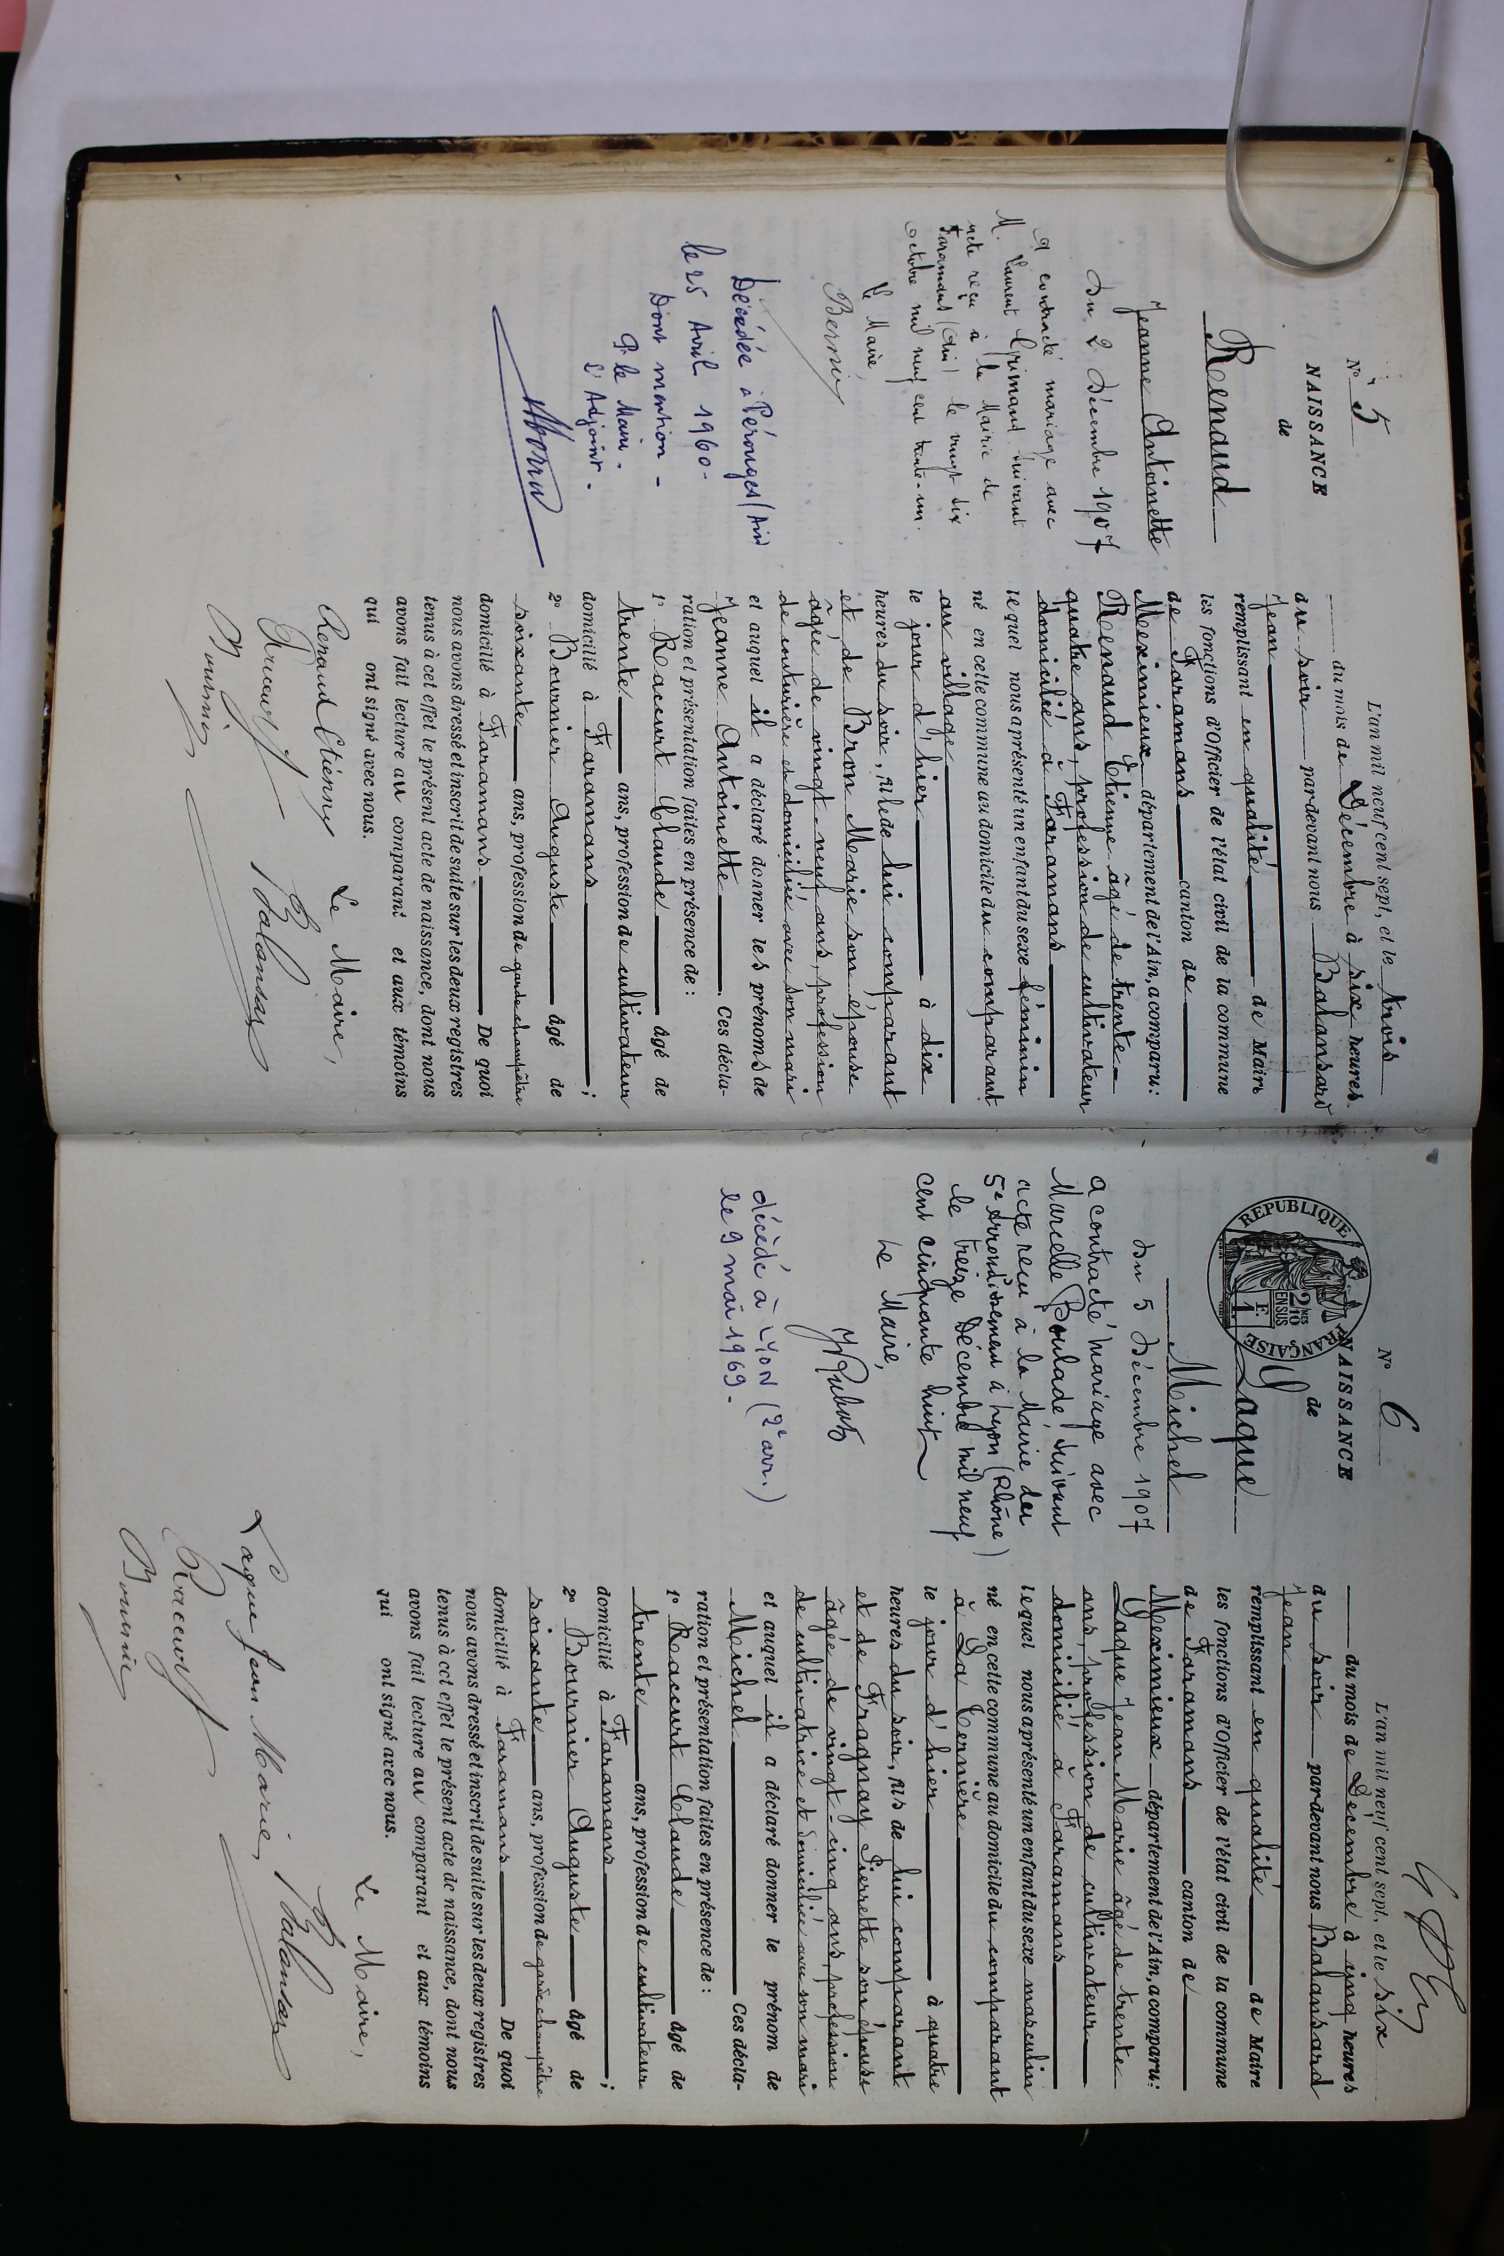 N° 5
NAISSANCE
de
Renaud
Jeanne Antoinette
du 2 Décembre 1907
a contracté mariage avec
M. Laurent Grimand suivant
acte reçu à la Mairie de
Faramans (Ain) le vingt six
octobre mil neuf cent trente-un.
Le Maire
Bernin
Décédée à Pérouges (Ain)
le 25 Avril 1960-
Dont mention -
P. le Maire.
L'Adjoint.
L'an mil neuf cent sept, et le trois
du mois de Décembre à six heures.
du soir pardevant nous Balansard
Jean
remplissant en qualité de Maire
les fonctions d'Officier de l'état civil de la commune
de Faramans canton de
Meximieux département de l'Ain, a comparu:
Renaud Etienne âgé de trente-
quatre ans, profession de cultivateur
domicilié à Faramans
lequel nous a présenté un enfant du sexe féminin
né en cette commune au domicile du comparant
au village
le jour d'hier à dix
heures du soir, fils de lui comparant
et de Bron Marie son épouse
âgée de vingt-neuf ans, profession
de couturière et domiciliée avec son mari
et auquel il a déclaré donner les prénoms de
Jeanne Antoinette . Ces décla-
ration et présentation faites en présence de :
1° Raccurt Claude âgé de
trente ans, profession de cultivateur
domicilié à Faramans ;
2° Bournier Auguste âgé de
soixante ans, profession de garde champêtre
domicilié à Faramans. De quoi
nous avons dressé et inscrit de suite sur les deux registres
tenus à cet effet le présent acte de naissance, dont nous
avons fait lecture au comparant et aux témoins
qui ont signé avec nous.
Le Maire,
Renaud Etienny
Raccurt
Balansard
Bournier
N° 6
NAISSANCE
de
REPUBLIQUE FRANÇAISE
2/10 EN SUS
1 F.
Laque
Michel
du 5 Décembre 1907
a contracté mariage avec
Marcelle Poulade suivant
acte recu à la Mairie du
5e Arrondissement à Lyon (Rhône)
le treize Décembre mil neuf
cent cinquante huit
Le Maire,
décédé à LYON (2e arr.)
le 9 mai 1969.
L'an mil neuf cent sept, et le six
du mois de Décembre à cinq heures
du soir pardevant nous Balansard
Jean
remplissant en qualité de Maire
les fonctions d'Officier de l'état civil de la commune
de Faramans canton de
Meximieux département de l'Ain, a comparu:
Laque Jean Marie âgé de trente
ans, profession de cultivateur
domicilié à Faramans
lequel nous a présenté un enfant du sexe masculin
né en cette commune au domicile du comparant
à La
le jour d'hier à quatre
heures du soir, fils de lui comparant
et de Fragnay Pierrette son épouse
âgée de vingt-cinq ans, profession
de cultivatrice et domiciliée avec son mari
et auquel il a déclaré donner le prénom de
Michel Ces décla-
ration et présentation faites en présence de :
1° Raccurt Claude âgé de
trente ans, profession de cultivateur
domicilié à Faramans ;
2° Bournier Auguste âgé de
soixante ans, profession de garde champêtre
domicilié à Faramans De quoi
nous avons dressé et inscrit de suite sur les deux registres
tenus à cet effet le présent acte de naissance, dont nous
avons fait lecture au comparant et aux témoins
qui ont signé avec nous.
Le Maire,
Laque Jean Marie,
Balansard
Raccurt
Bournier